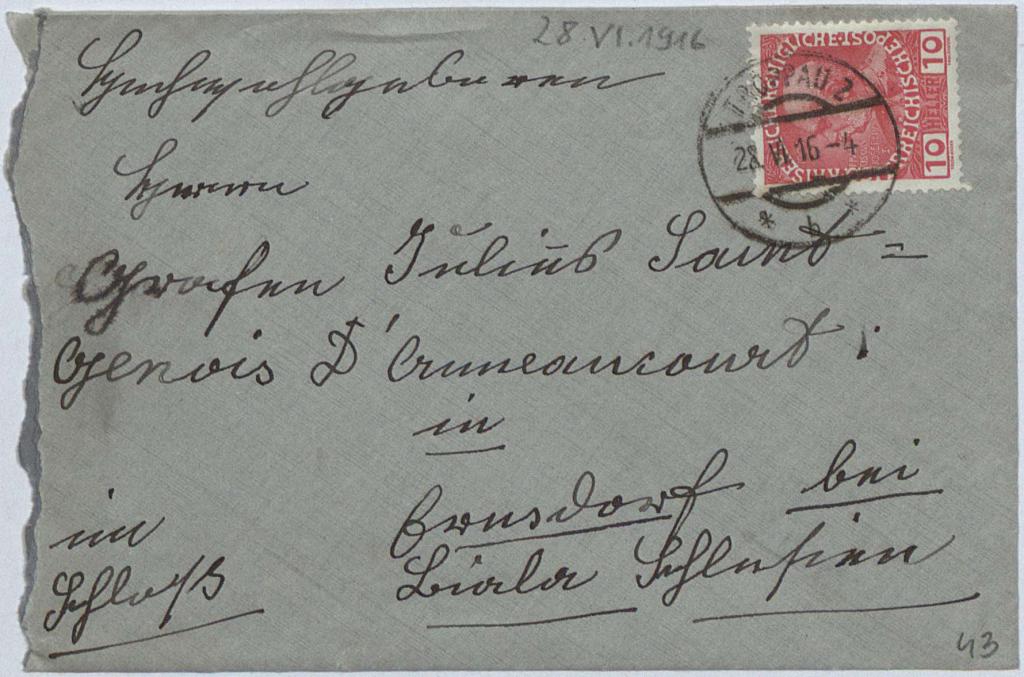 28.VI.1916
KAISERLICHE KÖNIGLICHE ÖSTERREICHISCHE POST
10 HELLER 10
TROPPAU 2
28.VI.16-4
* b *
Hochwohlgeboren
Herrn
Grafen Julius Saint=
Genois D'Anneaucourt
in
Ernsdorf bei
Biala Schlesien
im
Schloß
43